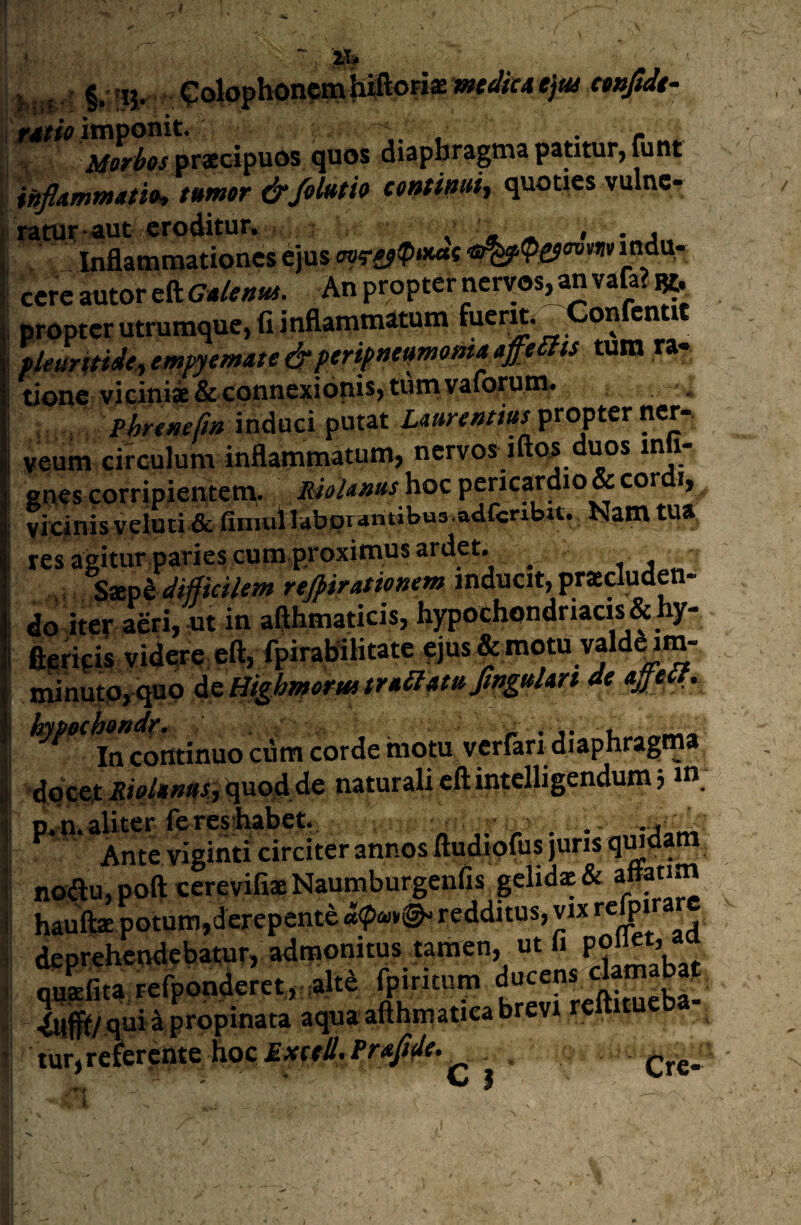 21.
§. 13. Colophonem hiſtoriæ medica ejus conſide-
ratio imponit.
Morbos præcipuos quos diaphragma patitur, ſunt
inflammatio, tumor & ſolutio continui, quoties vulne-
ratur aut eroditur.
Inflammationes ejus indu-
cere autor eſt Galenus. An propter nervos, an vaſa? ℞.
propter utrumque, ſi inflammatum fuerit. Conſentit
pleuritide, empyemate & peripneumonia affectis tùm ra-
tione viciniæ & connexionis, tùm vaſorum.
Phreneſin induci putat Laurentius propter ner-
veum circulum inflammatum, nervos iſtos duos inſi-
gnes corripientem. Riolanus hoc pericardio & cordi,
vicinis veluti & ſimul laborantibus adſcribit. Nam tua
res agitur paries cum proximus ardet.
Sæpè difficilem reſpirationem inducit, præcluden-
do iter aëri, ut in aſthmaticis, hypochondriacis & hy-
ſtericis videre eſt, ſpirabilitate ejus & motu valdè im-
minuto, quo de Highmorus tractatu ſingulari de affect.
hypochondr.
In continuo cùm corde motu verſari diaphragma
docet Riolanus, quod de naturali eſt intelligendum; in
p. n. aliter ſe res habet.
Ante viginti circiter annos ſtudioſus juris quidam
noctu, poſt cereviſiæ Naumburgenſis gelidæ & affatim
hauſtæ potum, derepentè ἄφων@ redditus, vix reſpirare
deprehendebatur, admonitus tamen, ut ſi poſſet, ad
quæſita reſponderet, altè ſpiritum ducens clamabat
Lufft/ qui à propinata aqua aſthmatica brevi reſtitueba-
tur, referente hoc Excell. Præſide.
C 3
Cre-